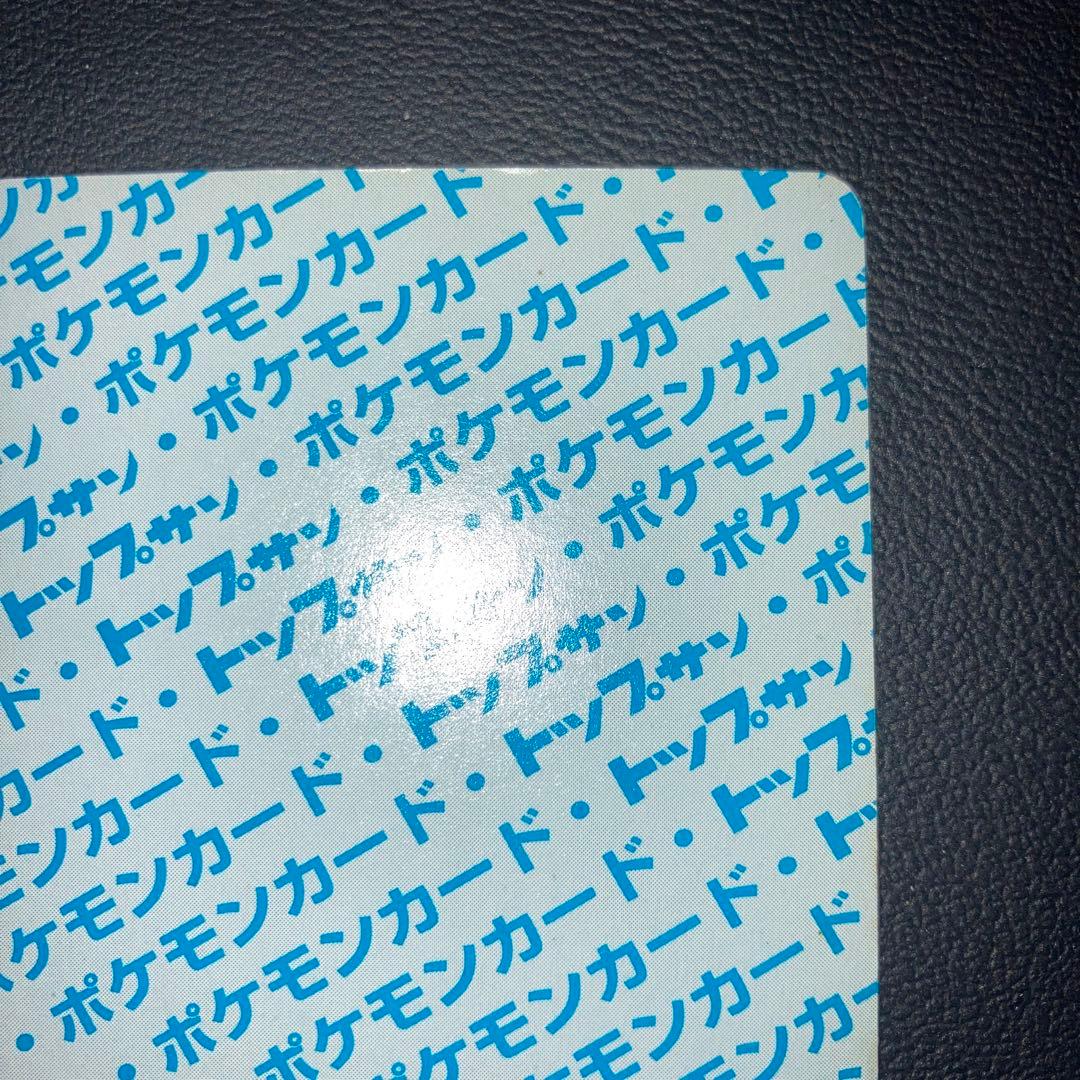 ンカ
モンカー
ポケモンカード
ン・ポケモンカード
プサン・ポケモンカード・
トップサン・ポケモンカード・ト
ド・トップサン・ポケモンカード・
ード・トップサン・ポケモンカード
カード・トップサン・ポケモンカ
ンカード・トップサン・ポケモ
ケモンカード・トップサン・ポ
・ポケモンカード・トップサン
・ポケモンカード・トップ
ポケモンカード・ト
ケモンカード
モンカー
ンカ